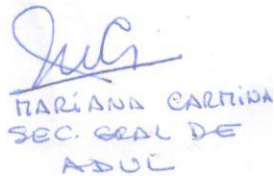 MARIANA CARMINA
SEC. GRAL DE
ADUL